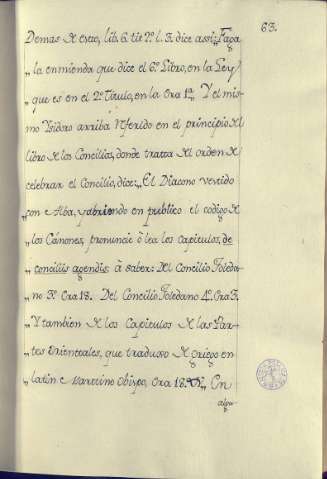 63.
Demas de esto, lib. 6. tit. 2º. l. 3. dice assi: Faga
„la enmienda que dice el 6º. Libro, en la Ley
„que es en el 2º. Titulo, en la Ora 1ª„ Y el mis-
mo Ysidoro arriba referido en el principio del
libro de los Concilios, donde trata del orden de
celebrar el Concilio, dice: „El Diacono vestido
„con Alba, y abriendo en publico el codigo de
„los Cánones, pronuncie ò lea los capitulos, de
„conciliis agendis à saber: Del Concilio Toleda-
„no 3º. Ora 18. Del Concilio Toledano 4º. Ora 3.
„Y tambien de los Capitulos de las Par-
„tes Orientales, que traduxo de griego en
„latin Martino Obispo, Ora 18. „ En
algu-